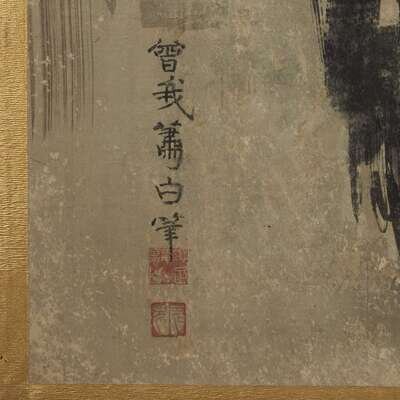 曾我蕭白筆